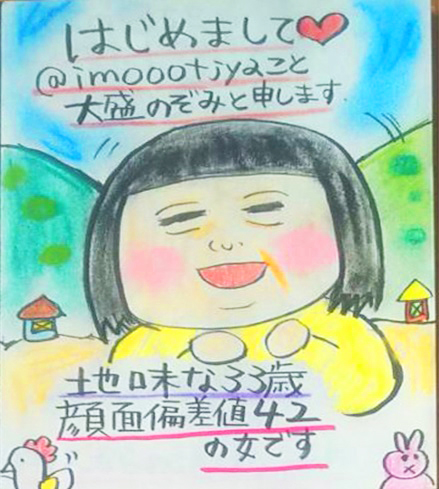 はじめまして❤
@imoootjyaこと
大盛のぞみと申します.
地味な33歳
顔面偏差値42
の女です